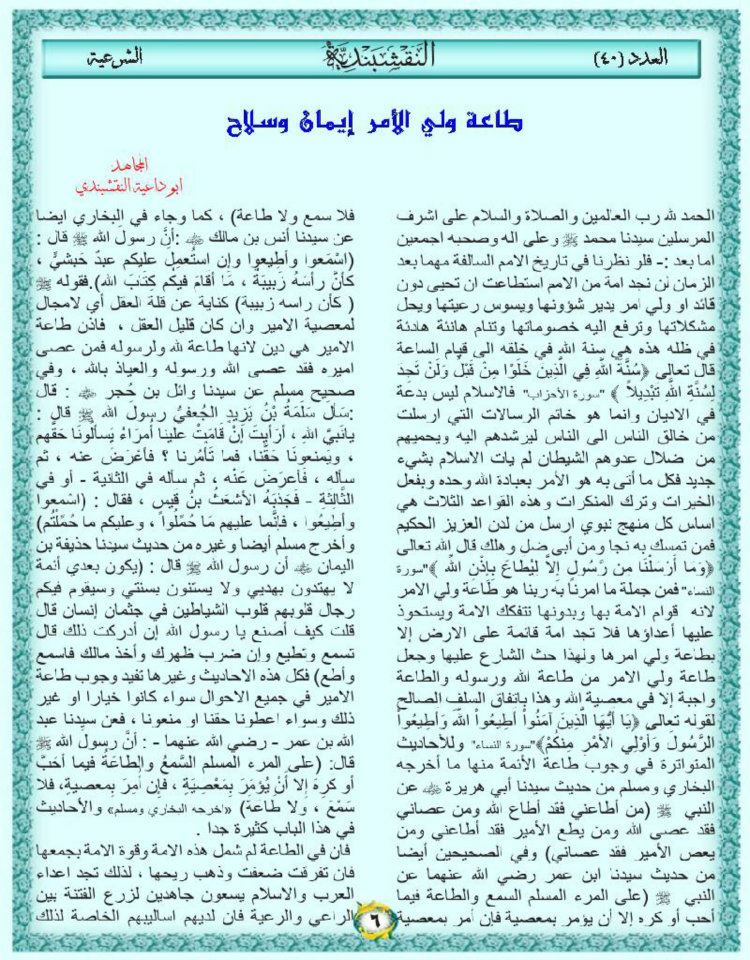 العدد (٤٠)
النقشبندية
الشرعية
طاعة ولي الأمر إيمان وسلاح
المجاهد
ابو داعية النقشبندي
الحمد لله رب العالمين والصلاة والسلام على اشرف
المرسلين سيدنا محمد ﷺ وعلى اله وصحبه اجمعين
اما بعد :- فلو نظرنا في تاريخ الامم السالفة مهما بعد
الزمان لن نجد امة من الامم استطاعت ان تحيى دون
قائد او ولي امر يدير شؤونها ويسوس رعيتها ويحل
مشكلاتها وترفع اليه خصوماتها وتنام هانئة هادئة
في ظله هذه هي سنة الله في خلقه الى قيام الساعة
قال تعالى ﴿سُنَّةَ اللَّهِ فِي الَّذِينَ خَلَوْا مِنْ قَبْلُ وَلَنْ تَجِدَ
لِسُنَّةِ اللَّهِ تَبْدِيلاً ﴾ "سورة الأحزاب" فالاسلام ليس بدعة
في الاديان وانما هو خاتم الرسالات التي ارسلت
من خالق الناس الى الناس ليرشدهم اليه ويحميهم
من ضلال عدوهم الشيطان لم يات الاسلام بشيء
جديد فكل ما أتى به هو الأمر بعبادة الله وحده وبفعل
الخيرات وترك المنكرات وهذه القواعد الثلاث هي
اساس كل منهج نبوي ارسل من لدن العزيز الحكيم
فمن تمسك به نجا ومن أبى ضل وهلك قال الله تعالى
﴿وَمَا أَرْسَلْنَا مِن رَّسُولٍ إِلاَّ لِيُطَاعَ بِإِذْنِ اللَّهِ ﴾"سورة
النساء" فمن جملة ما امرنا به ربنا هو طاعة ولي الامر
لانه قوام الامة بها وبدونها تتفكك الامة ويستحوذ
عليها أعداؤها فلا تجد امة قائمة على الارض إلا
بطاعة ولي امرها ولهذا حث الشارع عليها وجعل
طاعة ولي الامر من طاعة الله ورسوله والطاعة
واجبة إلا في معصية الله وهذا باتفاق السلف الصالح
لقوله تعالى ﴿يَا أَيُّهَا الَّذِينَ آمَنُواْ أَطِيعُواْ اللَّهَ وَأَطِيعُواْ
الرَّسُولَ وَأُوْلِي الأَمْرِ مِنكُمْ﴾"سورة النساء" وللأحاديث
المتواترة في وجوب طاعة الأئمة منها ما أخرجه
البخاري ومسلم من حديث سيدنا أبي هريرة ﷺ عن
النبي ﷺ (من أطاعني فقد أطاع الله ومن عصاني
فقد عصى الله ومن يطع الأمير فقد أطاعني ومن
يعص الأمير فقد عصاني) وفي الصحيحين أيضا
من حديث سيدنا ابن عمر رضي الله عنهما عن
النبي ﷺ (على المرء المسلم السمع والطاعة فيما
أحب أو كره إلا أن يؤمر بمعصية فإن أمر بمعصية
فلا سمع ولا طاعة) ، كما وجاء في البخاري ايضا
عن سيدنا أنس بن مالك :أنَّ رسول الله ﷺ قال :
(اسْمَعوا وأطِيعوا وإن استُعمِلَ عليكم عبدٌ حَبشيٌّ ،
كَأَنَّ رأسَهُ زَبِيبَةٌ ، مَا أقامَ فيكم كِتَابَ الله).فقوله ﷺ
( كأن راسه زبيبة) كناية عن قلة العقل أي لامجال
لمعصية الامير وان كان قليل العقل ، فاذن طاعة
الامير هي دين لانها طاعة لله ولرسوله فمن عصى
اميره فقد عصى الله ورسوله والعياذ بالله ، وفي
صحيح مسلم عن سيدنا وائل بن حُجر : قال
:سأل سَلَمَةُ بْنُ يَزِيدٍ الجُعفيُّ رسول الله ﷺ قال :
يانَبيَّ الله ، أرَأيتَ إنْ قامَتْ علينا أُمرَاءُ يَسألونَا حَقَّهم
، ويَمنعونَا حَقَّنا، فما تَأمُرنا ؟ فأعْرَضَ عنه ، ثم
سأله ، فأعرَضَ عَنْه ، ثم سأله في الثانية - أو في
الثَّالِثة - فَجَذَبَهُ الأشعَثُ بنُ قَيسٍ ، فقال : (اسْمعوا
وأطِيعُوا ، فإنَّما عليهم مَا حُمِّلُوا ، وعليكم ما حُمِّلْتُم)
وأخرج مسلم أيضا وغيره من حديث سيدنا حذيفة بن
اليمان أن رسول الله ﷺ قال : (يكون بعدي أئمة
لا يهتدون بهديي ولا يستنون بسنتي وسيقوم فيكم
رجال قلوبهم قلوب الشياطين في جثمان إنسان قال
قلت كيف أصنع يا رسول الله إن أدركت ذلك قال
تسمع وتطيع وإن ضرب ظهرك وأخذ مالك فاسمع
وأطع) فكل هذه الاحاديث وغيرها تفيد وجوب طاعة
الامير في جميع الاحوال سواء كانوا خيارا او غير
ذلك وسواء اعطونا حقنا او منعونا ، فعن سيدنا عبد
الله بن عمر - رضي الله عنهما - : أنَّ رسول الله ﷺ
قال: (على المرء المسلم السَّمعُ والطاعَةُ فيما أحَبَّ
أو كرِهَ إلا أنْ يُؤمَرَ بِمَعْصِيَّةٍ ، فإن أُمِرَ بمعصيةٍ، فلا
سَمْعَ ، ولا طَاعَةَ) «اخرجه البخاري ومسلم» والأحاديث
في هذا الباب كثيرة جدا .
فان في الطاعة لم شمل هذه الامة وقوة الامة بجمعها
فان تفرقت ضعفت وذهب ريحها ، لذلك تجد اعداء
العرب والاسلام يسعون جاهدين لزرع الفتنة بين
الراعي والرعية فان لديهم اساليبهم الخاصة لذلك
٦